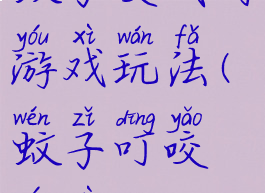 yóu xì wán fǎ
游戏玩法(
wén zǐ dīng yǎo
蚊子叮咬